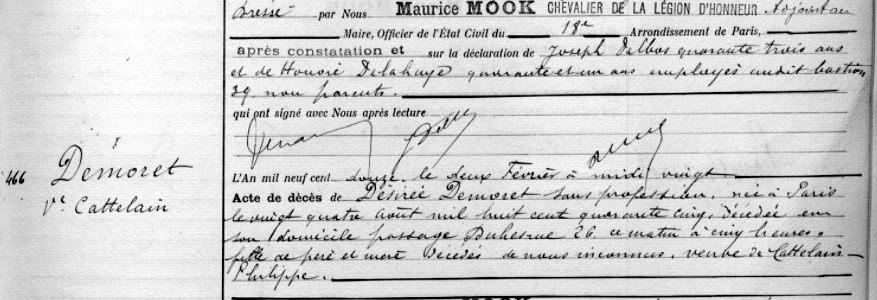 Dressé par Nous Maurice MOOK CHEVALIER DE LA LÉGION D'HONNEUR Adjoint au
Maire, Officier de l'État Civil du 18e Arrondissement de Paris,
après constatation et sur la déclaration de Joseph Delbos quarante trois ans
et de Honoré Delahaye quarante et un ans employés audit bastion
39 non parents.
qui ont signé avec Nous après lecture
466
Démoret
Ve Cattelain
L'An mil neuf cent douze, le deux Février à midi vingt
Acte de décès de Désirée Demoret sans profession, née à Paris
le vingt quatre Août mil huit cent quarante cinq, décédée en
son domicile passage Duhesme 26 ce matin à cinq heures,
fille de père et mère décédés de nous inconnus, veuve de Cattelain
Philippe.